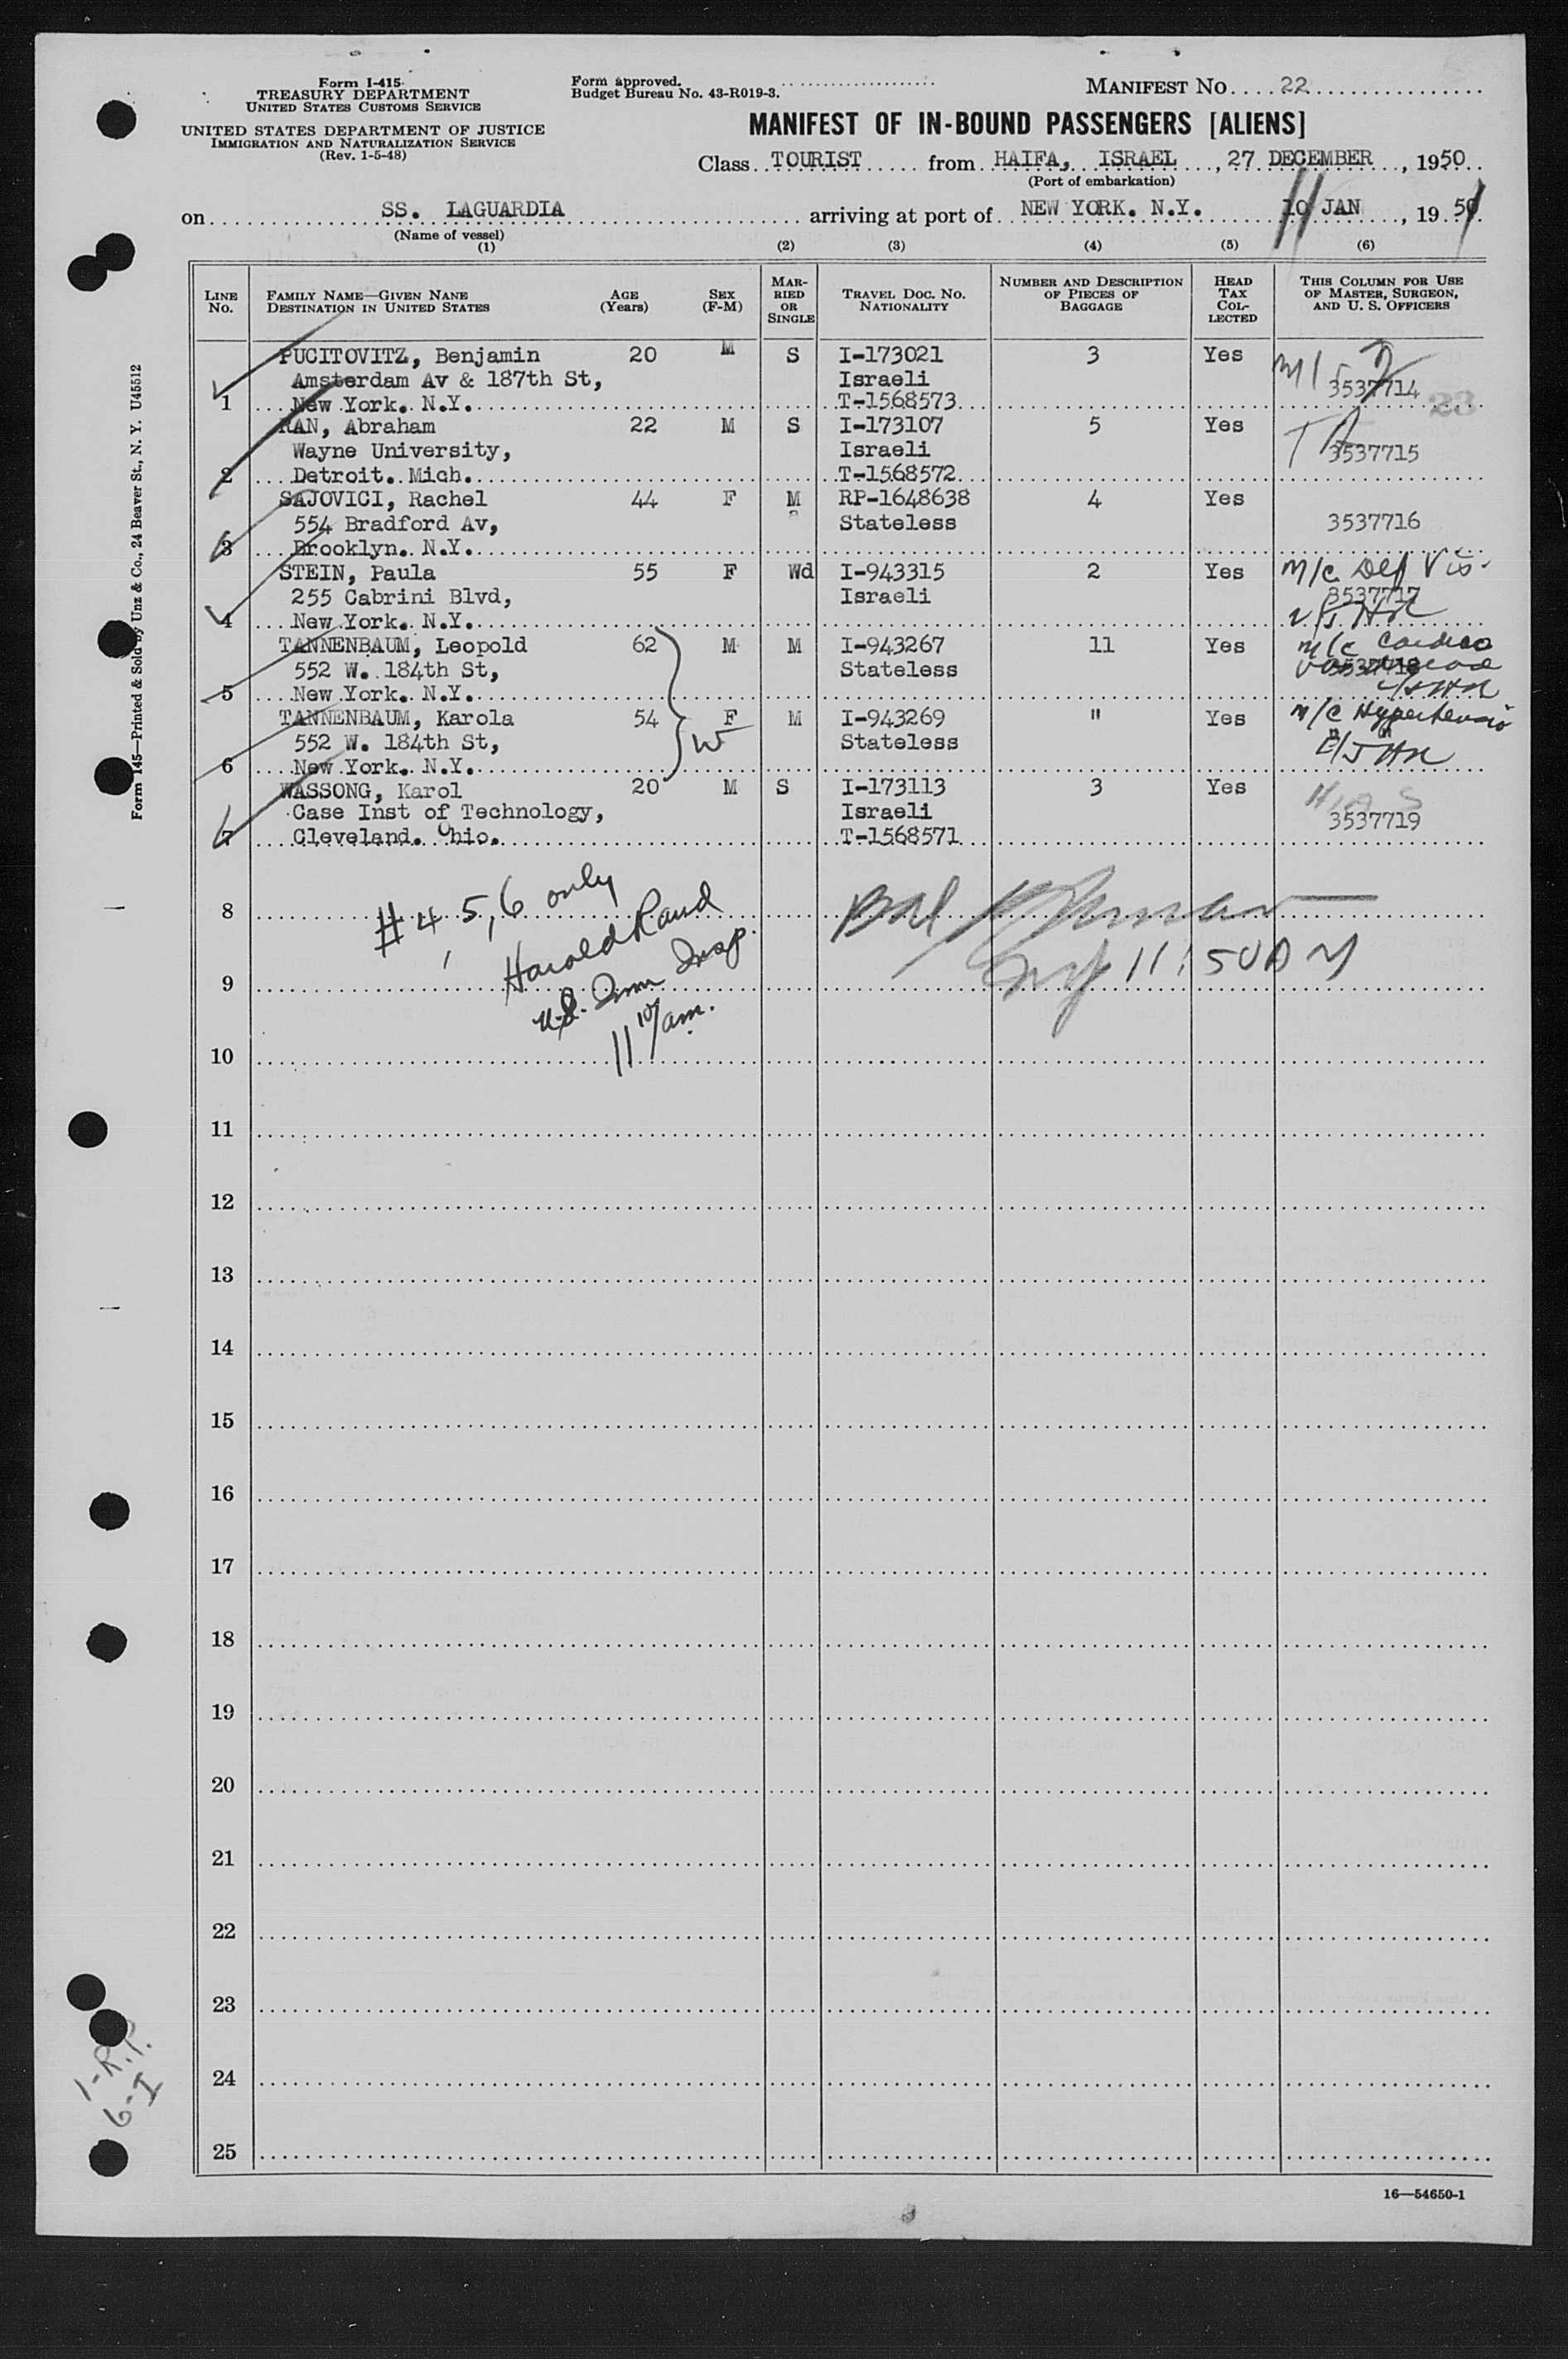 Form I-415
TREASURY DEPARTMENT
UNITED STATES CUSTOMS SERVICE
UNITED STATES DEPARTMENT OF JUSTICE
IMMIGRATION AND NATURALIZATION SERVICE
(Rev. 1-5-48)
Form approved.
Budget Bureau No. 43-R019-3.
MANIFEST NO. 22
MANIFEST OF IN-BOUND PASSENGERS [ALIENS]
Class TOURIST from HAIFA, ISRAEL, 27 DECEMBER, 1950
(Port of embarkation)
on SS. LAGUARDIA arriving at port of NEW YORK. N.Y. 11 JAN, 1951
(Name of vessel)
(1) (2) (3) (4) (5) (6)
LINE NO.
FAMILY NAME—GIVEN NANE
DESTINATION IN UNITED STATES
AGE (Years)
SEX (F-M)
MARRIED OR SINGLE
TRAVEL DOC. NO. NATIONALITY
NUMBER AND DESCRIPTION OF PIECES OF BAGGAGE
HEAD TAX COLLECTED
THIS COLUMN FOR USE OF MASTER, SURGEON, AND U. S. OFFICERS
PUCITOVITZ, Benjamin 20 M S I-173021 3 Yes
Amsterdam Av & 187th St, Israeli 3537714
1 New York. N.Y. T-1568573 23
RAN, Abraham 22 M S I-173107 5 Yes
Wayne University, Israeli 3537715
2 Detroit. Mich. T-1568572
SAJOVICI, Rachel 44 F M RP-1648638 4 Yes
554 Bradford Av, Stateless 3537716
3 Brooklyn. N.Y.
STEIN, Paula 55 F Wd I-943315 2 Yes M/C Def Vis
255 Cabrini Blvd, Israeli 3537717
4 New York. N.Y.
TANNENBAUM, Leopold 62 M M I-943267 11 Yes M/C Cardio
552 W. 184th St, Stateless 3537718
5 New York. N.Y.
TANNENBAUM, Karola 54 F M I-943269 " Yes M/C Hypertensio
552 W. 184th St, W Stateless "
6 New York. N.Y.
WASSONG, Karol 20 M S I-173113 3 Yes HIAS
Case Inst of Technology, Israeli 3537719
7 Cleveland. Ohio. T-1568571
#4, 5, 6 only
Harold Rand
U.S. Imm Insp.
11 10/am.
11:50AM
8
9
10
11
12
13
14
15
16
17
18
19
20
21
22
23
24
25
1-R.P.
6-I
Form 145—Printed & Sold by Unz & Co., 24 Beaver St., N. Y. U45512
16—54650-1